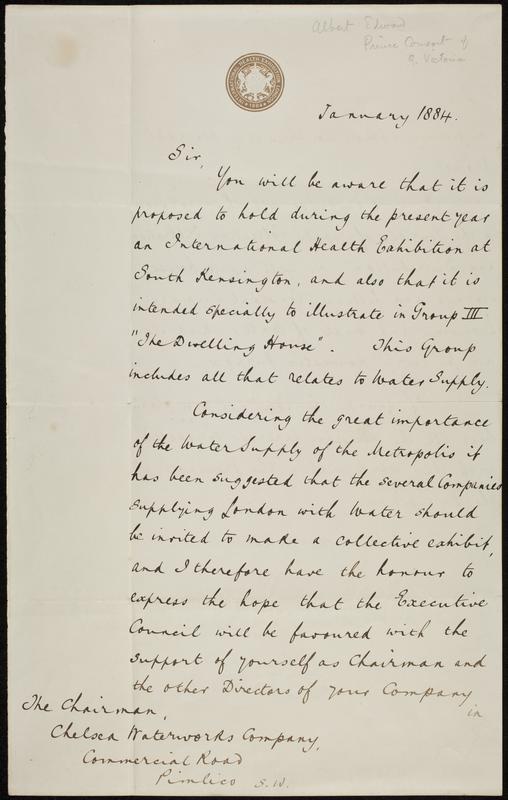 Albert Edward
Prince Consort of
Q. Victoria
INTERNATIONAL HEALTH EXHIBITION
January 1884.
Sir,
You will be aware that it is
proposed to hold during the present year
an International Health Exhibition at
South Kensington, and also that it is
intended specially to illustrate in Group III
"The Dwelling House". This Group
includes all that relates to Water Supply.
Considering the great importance
of the Water Supply of the Metropolis it
has been suggested that the several Companies
supplying London with Water should
be invited to make a collective exhibit,
and I therefore have the honour to
express the hope that the Executive
Council will be favoured with the
support of yourself as Chairman and
the other Directors of your Company
in
The Chairman,
Chelsea Waterworks Company,
Commercial Road
Pimlico S.W.